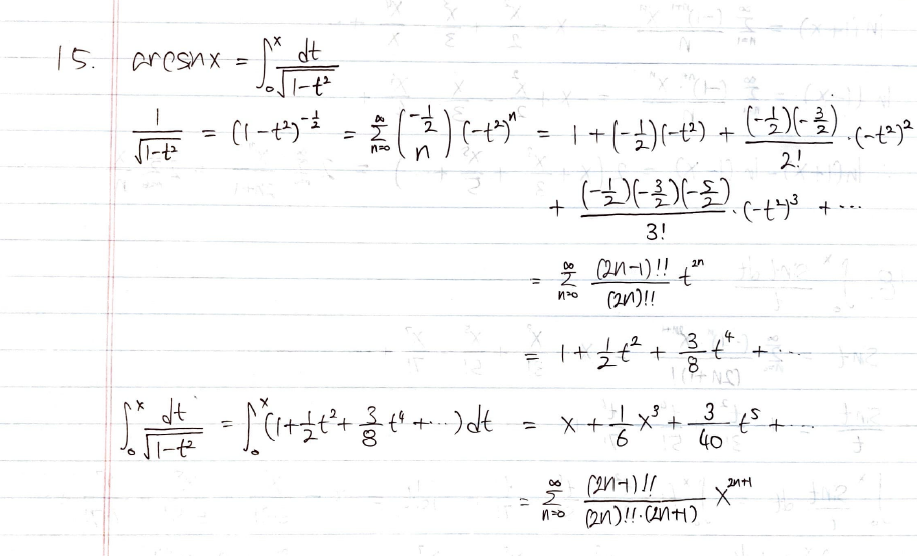 15. arcsinx = ∫₀ˣ dt/√(1-t²)
1/√(1-t²) = (1-t²)^(-1/2) = Σ_{n=0}^{∞} (-1/2 n) (-t²)ⁿ = 1 + (-1/2)(-t²) + (-1/2)(-3/2)/2! · (-t²)²
+ (-1/2)(-3/2)(-5/2)/3! · (-t²)³ + ···
= Σ_{n=0}^{∞} (2n-1)!!/(2n)!! t²ⁿ
= 1 + 1/2 t² + 3/8 t⁴ + ···
∫₀ˣ dt/√(1-t²) = ∫₀ˣ (1 + 1/2 t² + 3/8 t⁴ + ···) dt = x + 1/6 x³ + 3/40 t⁵ + ···
= Σ_{n=0}^{∞} (2n-1)!!/((2n)!!·(2n+1)) x²ⁿ⁺¹